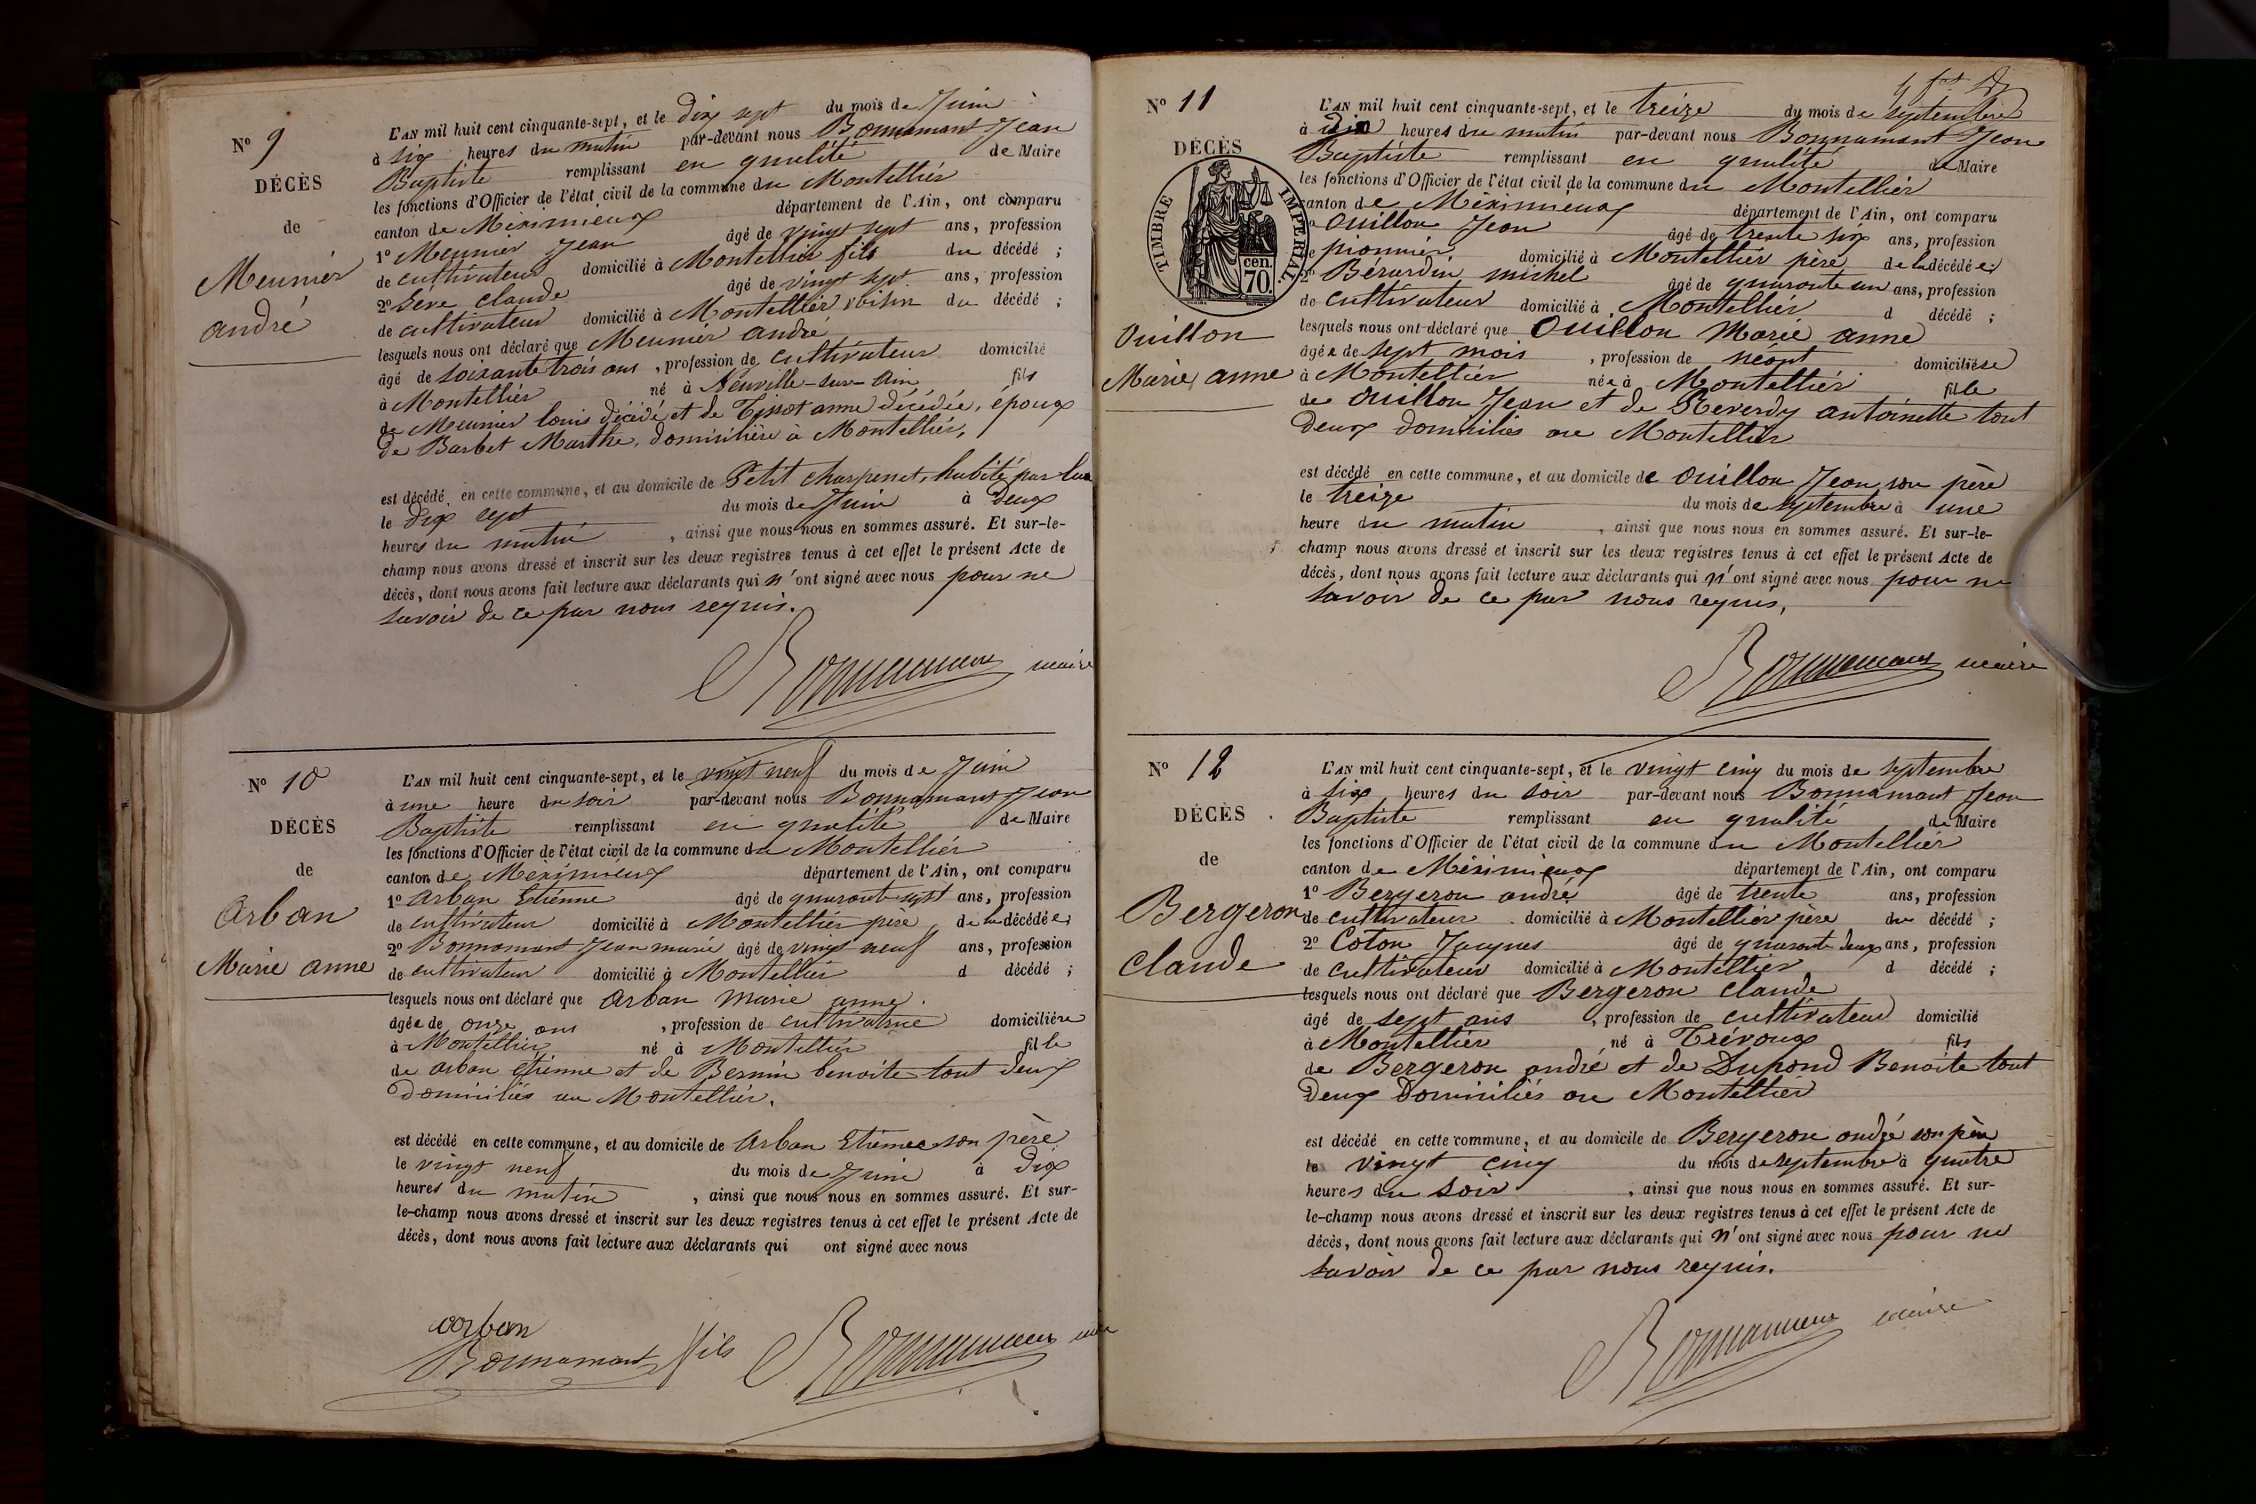 N° 9
DÉCÈS
de
Meunier
andré
L'AN mil huit cent cinquante-sept, et le dix sept du mois de Juin
à six heures du matin par-devant nous Bonnamant Jean
Baptiste remplissant en qualité de Maire
les fonctions d'Officier de l'état civil de la commune du Montellier
canton de Méximieux département de l'Ain, ont comparu
1° Meunier Jean âgé de vingt sept ans, profession
de cultivateur domicilié à Montellier fils du décédé ;
2° Sève Claude âgé de vingt sept ans, profession
de cultivateur domicilié à Montellier voisin du décédé ;
lesquels nous ont déclaré que Meunier andré
âgé de soixante trois ans , profession de cultivateur domicilié
à Montellier né à Neuville-sur-Ain fils
de Meunier louis décédé et de Tissot anne décédée, époux
de Barbet Marthe, domicilière à Montellier,
est décédé en cette commune, et au domicile de Petit charpenet, habité par lui
le dix sept du mois de Juin à deux
heures du matin , ainsi que nous nous en sommes assuré. Et sur-le-
champ nous avons dressé et inscrit sur les deux registres tenus à cet effet le présent Acte de
décès, dont nous avons fait lecture aux déclarants qui n'ont signé avec nous pour ne
savoir de ce par nous requis.
Bonnamant maire
N° 10
DÉCÈS
de
Arban
Marie anne
L'AN mil huit cent cinquante-sept, et le vingt neuf du mois de Juin
à une heure du soir par-devant nous Bonnamant Jean
Baptiste remplissant en qualité de Maire
les fonctions d'Officier de l'état civil de la commune du Montellier
canton de Méximieux département de l'Ain, ont comparu
1° Arban Etienne âgé de quarante sept ans, profession
de cultivateur domicilié à Montellier père de la décédée ;
2° Bonnamant Jean marie âgé de vingt neuf ans, profession
de cultivateur domicilié à Montellier d décédé ;
lesquels nous ont déclaré que Arban Marie anne
âgée de onze ans , profession de cultivatrice domicilière
à Montellier né à Montellier fille
de Arban Etienne et de Bernin benoite tout deux
Domiciliés au Montellier.
est décédé en cette commune, et au domicile de Arban Etienne son père
le vingt neuf du mois de Juin à dix
heures du matin , ainsi que nous nous en sommes assuré. Et sur-
le-champ nous avons dressé et inscrit sur les deux registres tenus à cet effet le présent Acte de
décès, dont nous avons fait lecture aux déclarants qui ont signé avec nous
arban
Bonnamant fils Bonnamant maire
N° 11
DÉCÈS
TIMBRE IMPÉRIAL.
cen. 70.
Ouillon
Marie anne
L'AN mil huit cent cinquante-sept, et le treize du mois de septembre
à dix heures du matin par-devant nous Bonnamant Jean
Baptiste remplissant en qualité de Maire
les fonctions d'Officier de l'état civil de la commune du Montellier
canton de Méximieux département de l'Ain, ont comparu
Ouillon Jean âgé de trente six ans, profession
de pionnier domicilié à Montellier père de la décédée ;
2° Bérardin michel âgé de quarante un ans, profession
de cultivateur domicilié à Montellier d décédé ;
lesquels nous ont déclaré que Ouillon Marie anne
âgée de sept mois , profession de néant domiciliée
à Montellier née à Montellier fille
de Ouillon Jean et de Reverdy antoinette tout
deux domiciliés au Montellier
est décédé en cette commune, et au domicile de Ouillon Jean son père
le treize du mois de septembre à une
heure du matin , ainsi que nous nous en sommes assuré. Et sur-le-
champ nous avons dressé et inscrit sur les deux registres tenus à cet effet le présent Acte de
décès, dont nous avons fait lecture aux déclarants qui n'ont signé avec nous pour ne
savoir de ce par nous requis,
Bonnamant maire
N° 12
DÉCÈS
de
Bergeron
claude
L'AN mil huit cent cinquante-sept, et le vingt cinq du mois de septembre
à six heures du soir par-devant nous Bonnamant Jean
Baptiste remplissant en qualité de Maire
les fonctions d'Officier de l'état civil de la commune du Montellier
canton de Méximieux département de l'Ain, ont comparu
1° Bergeron andré âgé de trente ans, profession
de cultivateur domicilié à Montellier père du décédé ;
2° Coton Jacques âgé de quarante deux ans, profession
de cultivateur domicilié à Montellier d décédé ;
lesquels nous ont déclaré que Bergeron claude
âgé de sept ans , profession de cultivateur domicilié
à Montellier né à Trévoux fils
de Bergeron andré et de Dupond Benoite tout
deux Domiciliés au Montellier
est décédé en cette commune, et au domicile de Bergeron andré son père
le vingt cinq du mois de septembre à quatre
heures du soir , ainsi que nous nous en sommes assuré. Et sur-
le-champ nous avons dressé et inscrit sur les deux registres tenus à cet effet le présent Acte de
décès, dont nous avons fait lecture aux déclarants qui n'ont signé avec nous pour ne
savoir de ce par nous requis.
Bonnamant maire